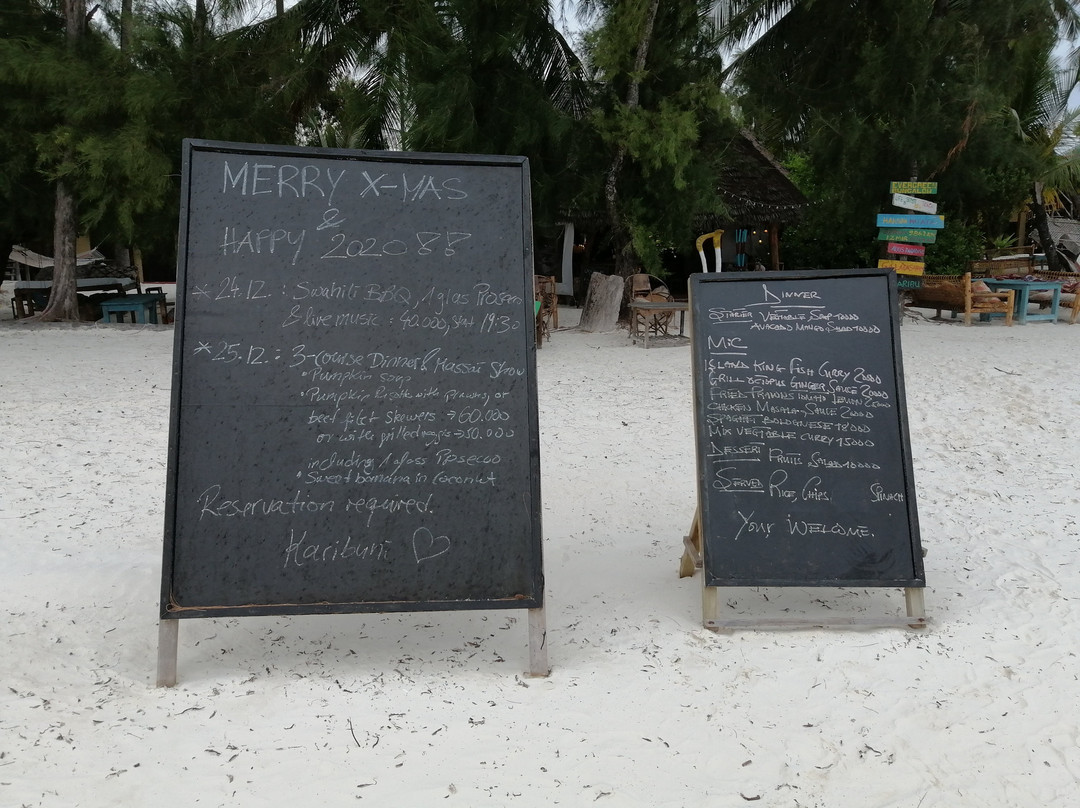 MERRY X-MAS
&
HAPPY 2020 !!
* 24.12. : Swahili BBQ, 1 glas Prosecco
& live music : 40.000, start 19:30
* 25.12. : 3-course Dinner & Massai Show
• Pumpkin soup
• Pumpkin Risotto with prawns, or
beef filet skewers → 60.000
or with grilled → 50.000
including 1 glass Prosecco
• Sweet banana in coconut
Reservation required.
Karibuni ♡
DINNER
STARTER VEGTABLE, SOUP 7000
AVACADO MANGO, SALAD 10000
M/C
ISLAND KING FISH CURRY 20000
GRILL OCTOPUS GINGER SAUCE 20000
FRIED PRAWNS WITH LEMON
CHICKEN MASALA, SAUCE 20000
SPAGHETI BOLOGNESE 18000
MIX VEGTABLE CURRY 15000
DESSERT FRUITS SALAD 10000
SERVED RICE, CHIPS. SPINACH
YOUR WELCOME.
EVERGREEN
KARIBU